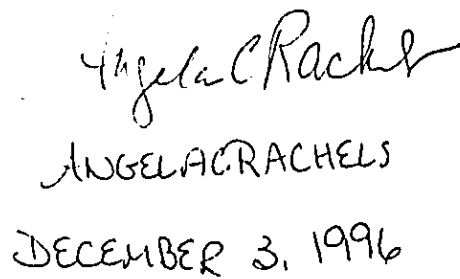 Angela C Rachels
ANGELA C. RACHELS
DECEMBER 3, 1996